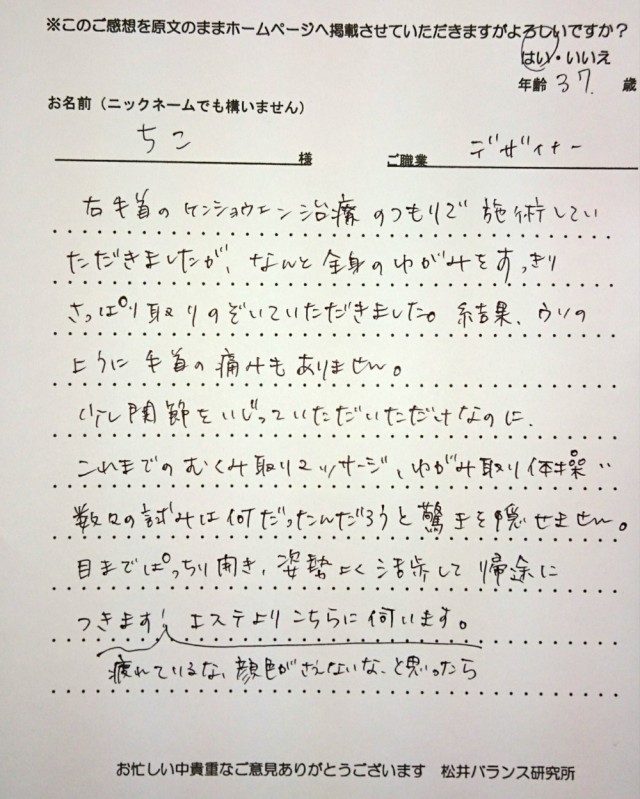 ※このご感想を原文のままホームページへ掲載させていただきますがよろしいですか？
はい・いいえ
年齢 37 歳
お名前（ニックネームでも構いません）
ちこ 様 ご職業 デザイナー
右手首のケンショウエン治療のつもりで施術してい
ただきましたが、なんと全身のゆがみをすっきり
さっぱり取りのぞいていただきました。結果、ウソの
ように手首の痛みもありません。
少し関節をいじっていただいただけなのに、
これまでのむくみ取りマッサージ、ゆがみ取り体操…
数々の試みは何だったんだろうと驚きを隠せません。
目までぱっちり開き、姿勢よく活歩して帰途に
つきます！エステよりこちらに伺います。
疲れているな、顔色がさえないな、と思ったら
お忙しい中貴重なご意見ありがとうございます 松井バランス研究所